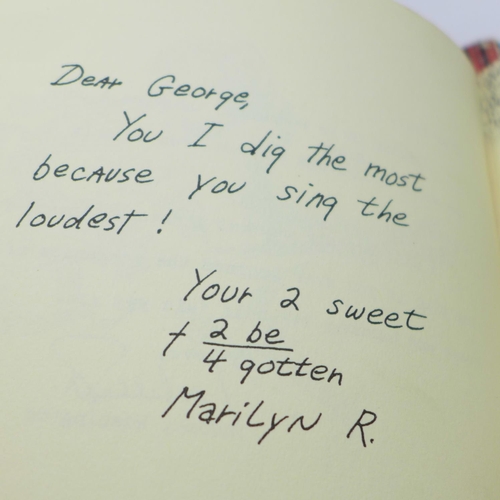 Dear George,
You I dig the most
because you sing the
loudest!
Your 2 sweet
+ 2 be
4 gotten
Marilyn R.